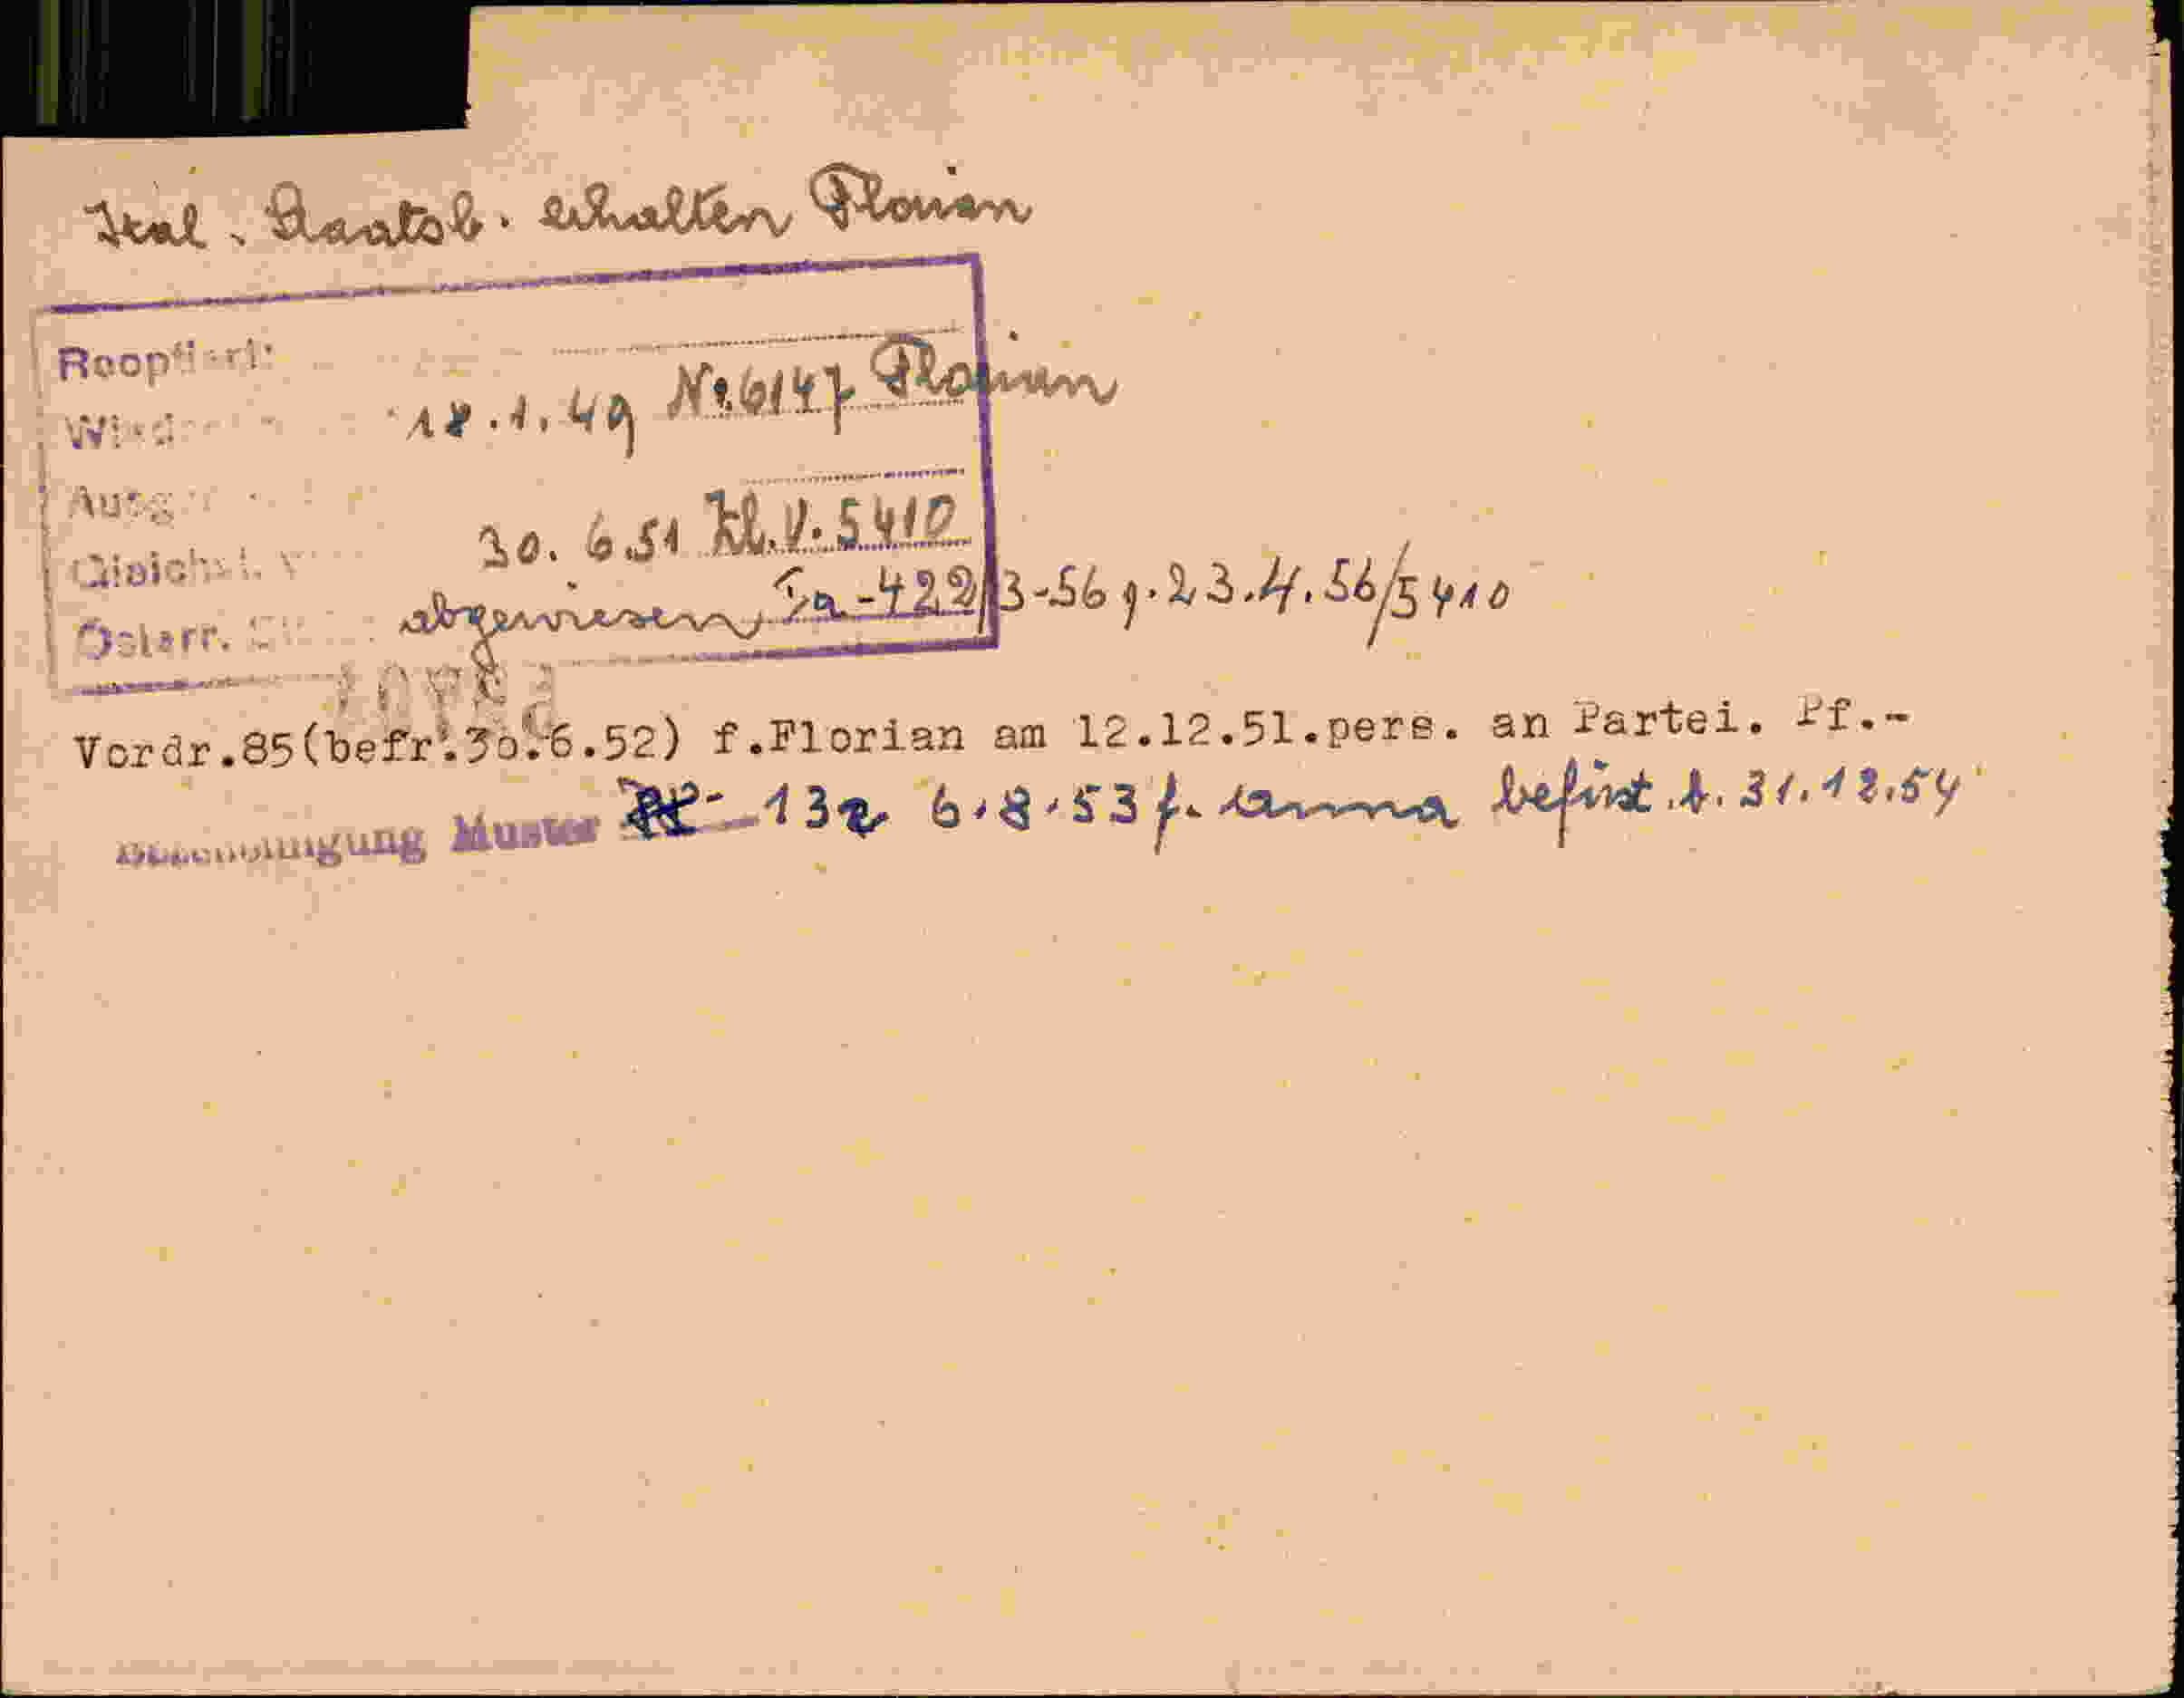 Ital. Staatsb. erhalten Florian
Reoptiert:
18.1.49 No. 6147 Florian
30. 6.51 Kl.V. 5410
Österr.
abgewiesen Ia-422/3-56 v. 23.4.56/5410
Vordr.85(befr.30.6.52) f.Florian am 12.12.51.pers. an Partei. Pf.-
Bescheinigung Muster 13a 6.8.53 f. Anna befrist. b. 31.12.54